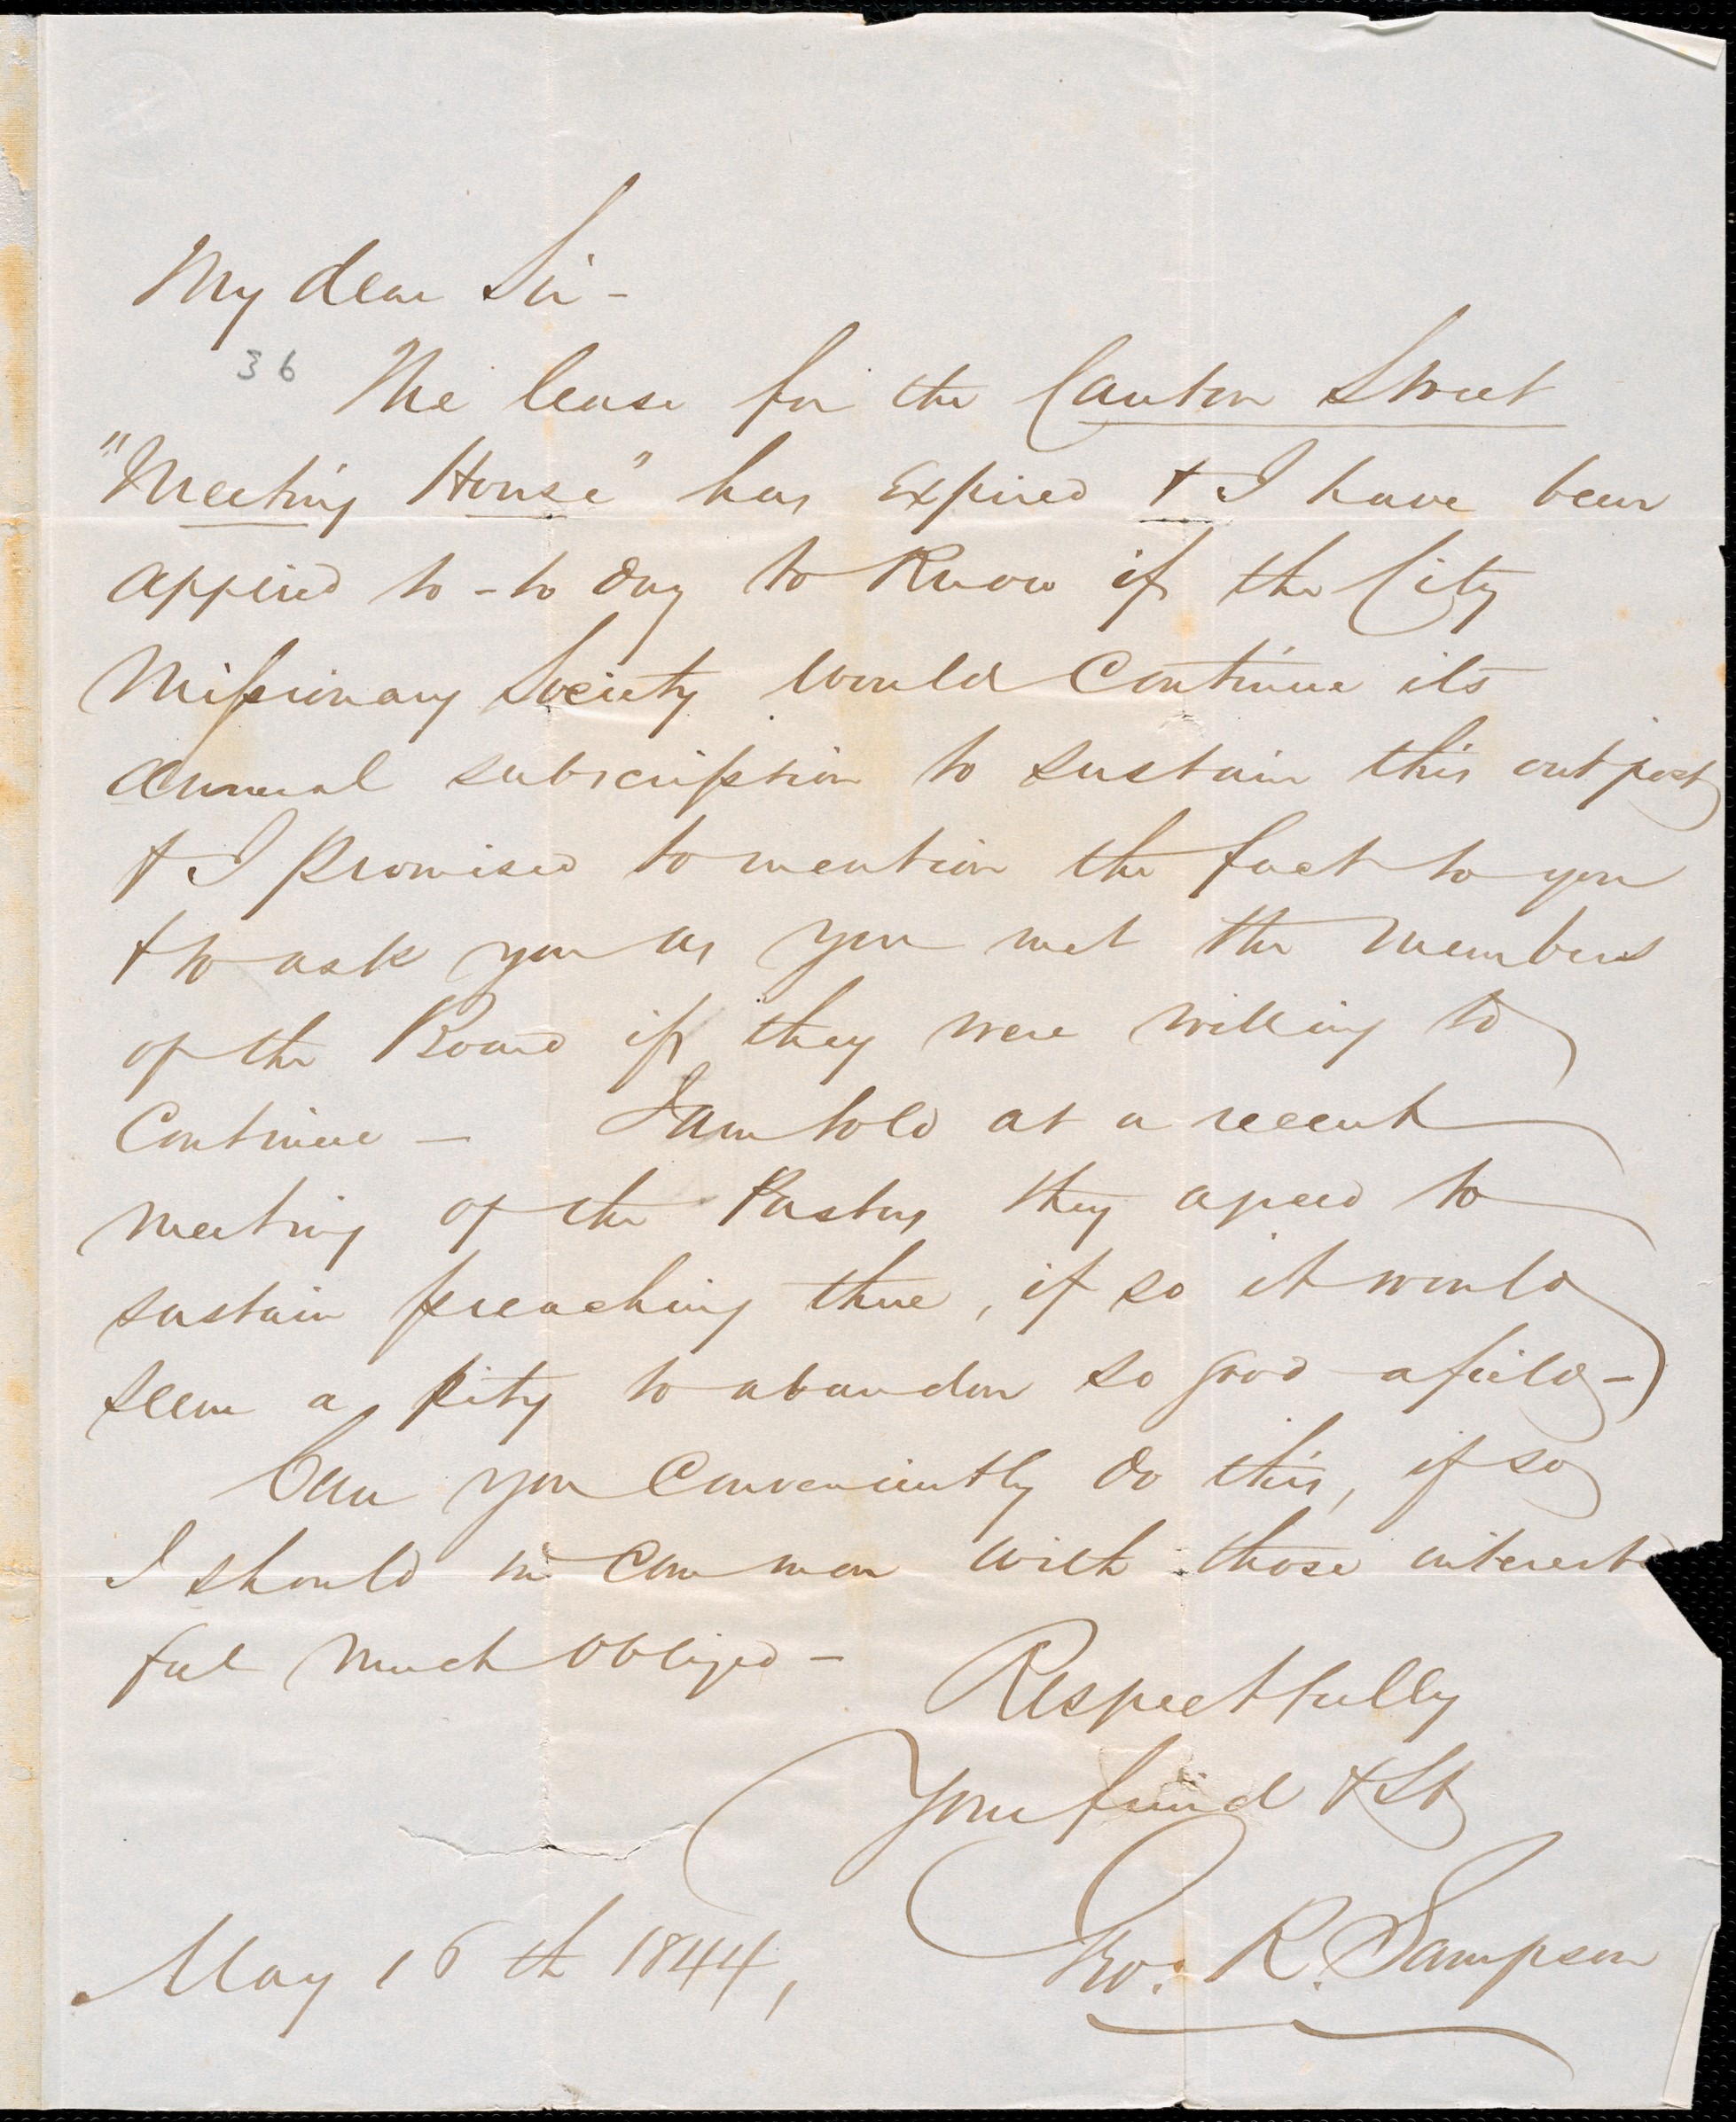 My dear Sir -
36
The lease for the Canton Street
"Meeting House" has expired & I have been
applied to - to day to Know if the City
Missionary Society would Continue its
annual subscription to sustain this outpost
& I promised to mention the fact to you
& to ask you as you met the members
of the Board if they were willing to
Continue - I am told at a recent
meeting of the Pastors they agreed to
sustain preaching there, if so it would
seem a pity to abandon so good a field -
Can you Conveniently do this, if so
I should in Common with those interested
feel much obliged -
Respectfully
Your friend & St
Geo: R. Sampson
May 16th 1844,